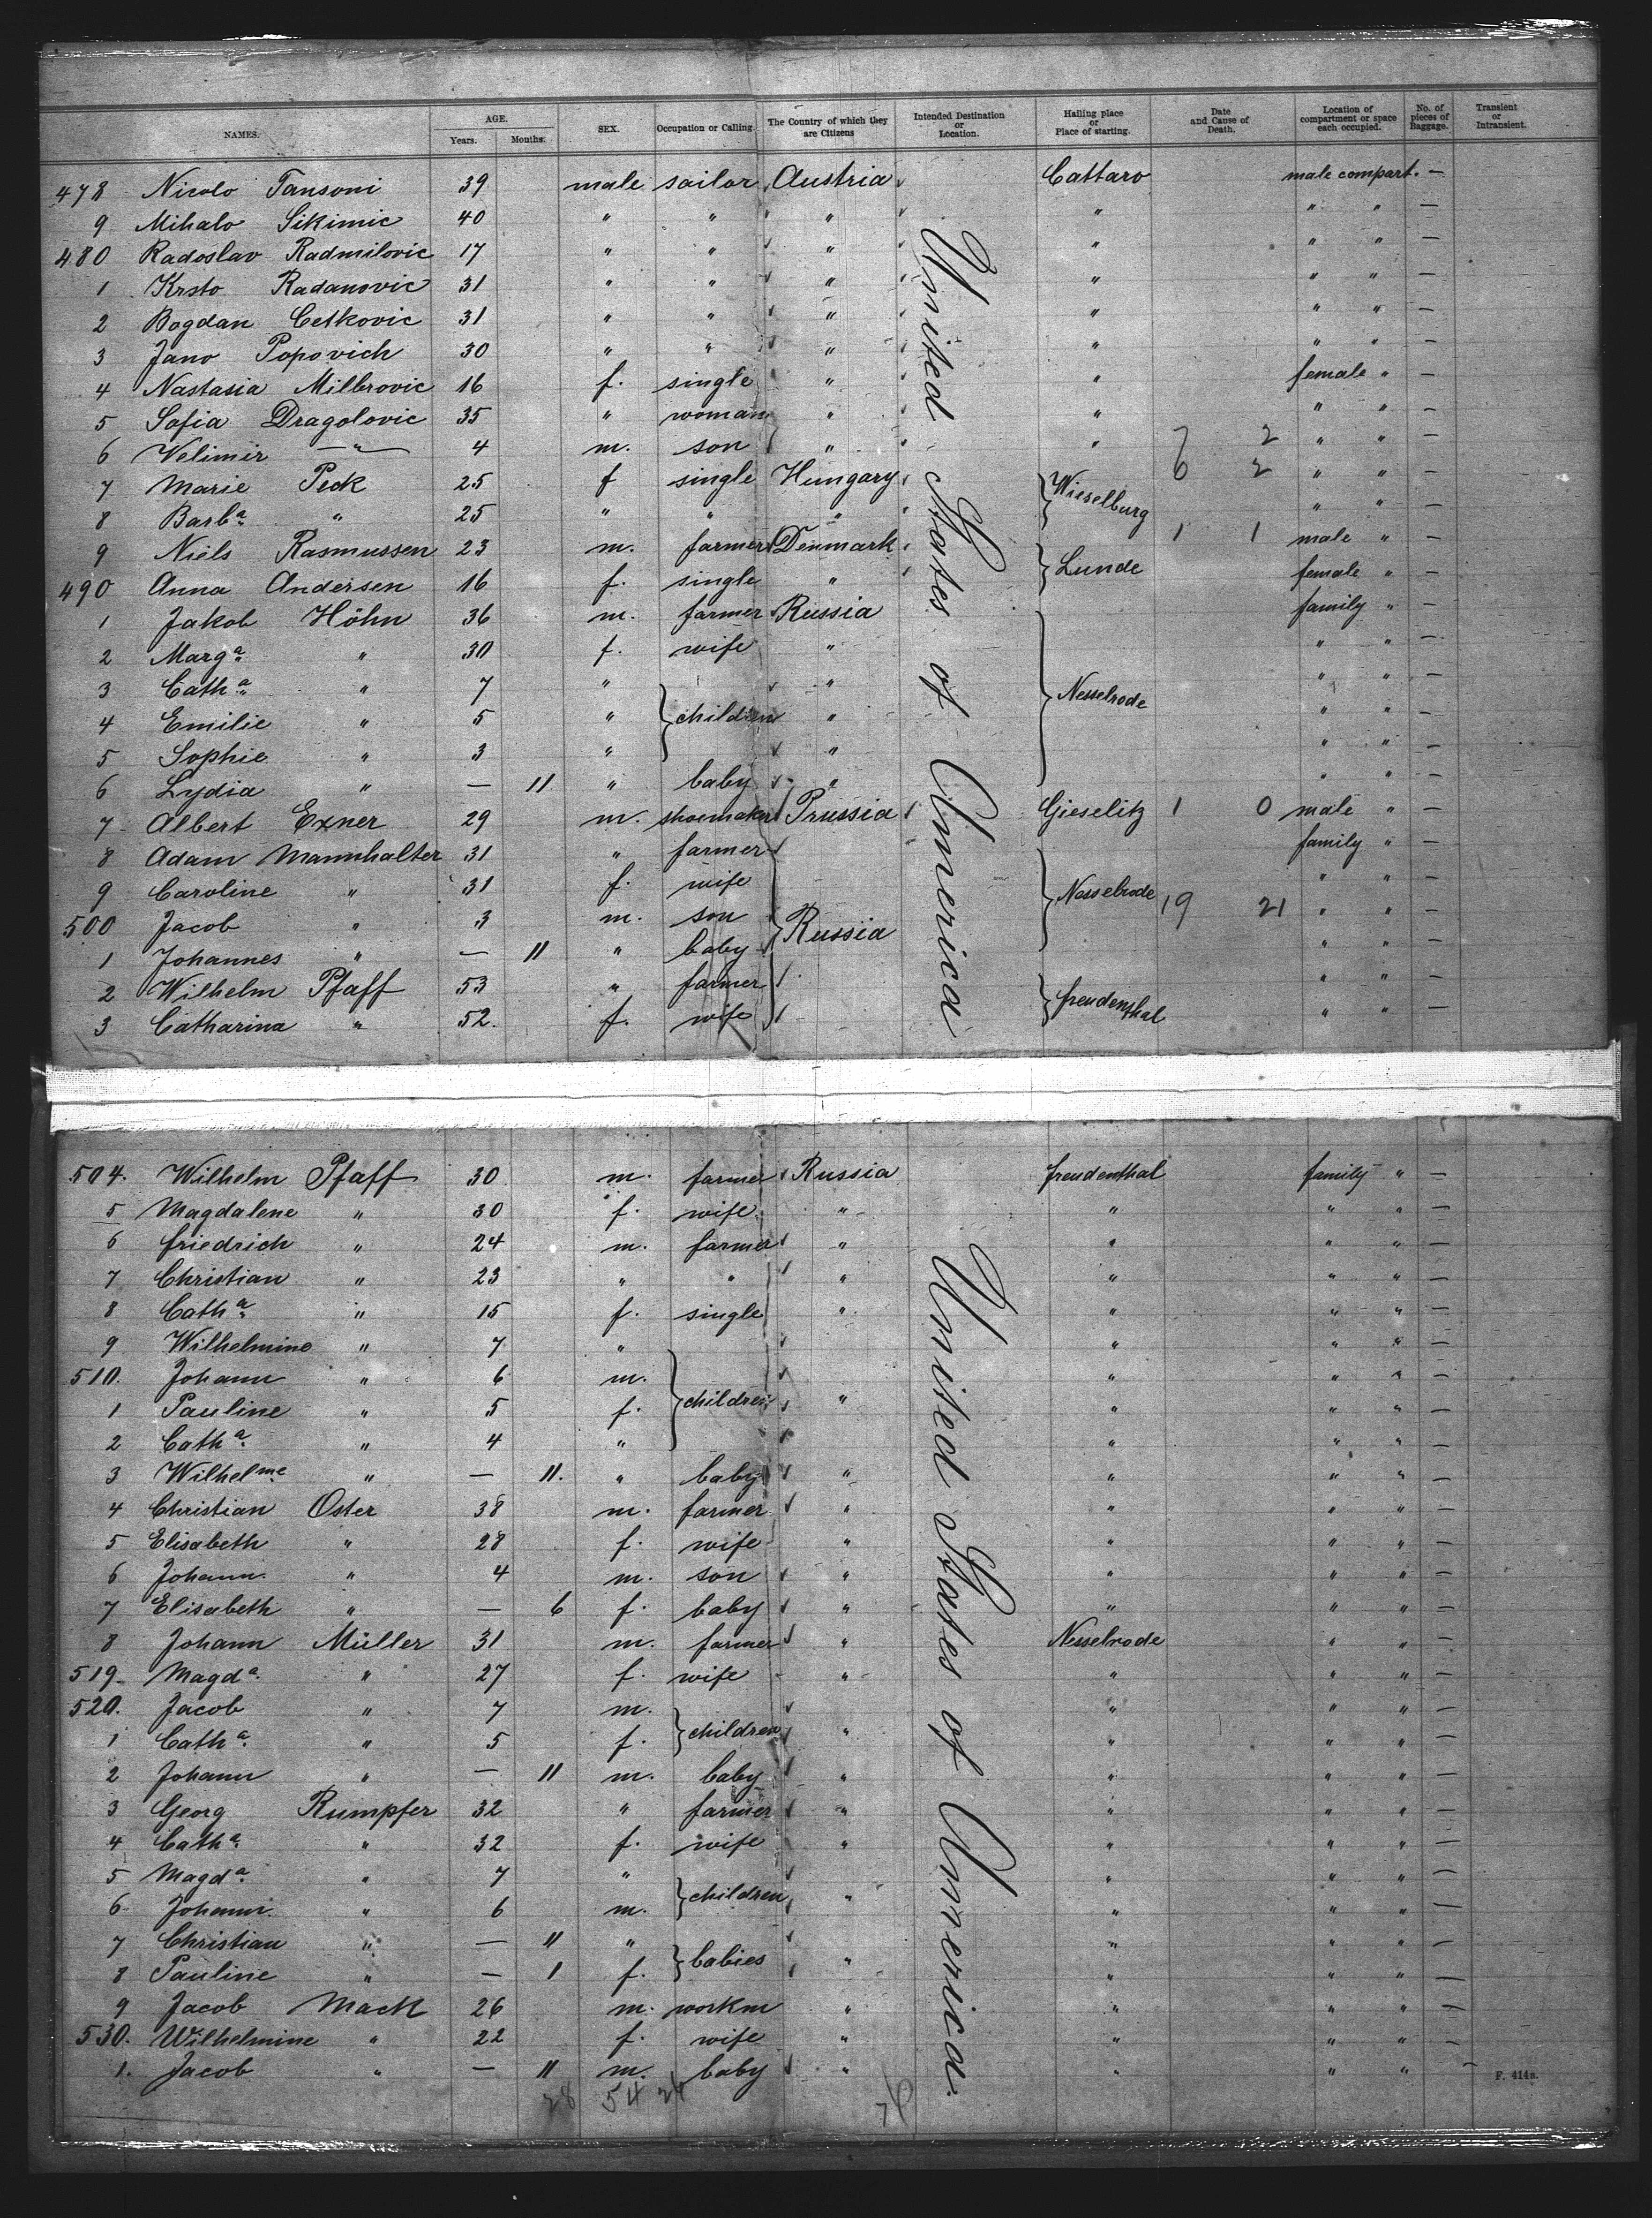 NAMES. AGE. Years. Months. SEX. Occupation or Calling. The Country of which they are Citizens Intended Destination or Location. Hailing place or Place of starting. Date and Cause of Death. Location of compartment or space each occupied. No. of pieces of Baggage. Transient or Intransient.
478 Nicolo Tansoni 39 male sailor Austria Cattaro male compart. —
9 Mihalo Sikimic 40 " " " " " " —
480 Radoslav Radmilovic 17 " " " " " " —
1 Krsto Radanovic 31 " " " " " " —
2 Bogdan Cetkovic 31 " " " " " " —
3 Jano Popovich 30 " " " " " " —
4 Nastasia Milbrovic 16 f. single " " female " —
5 Sofia Dragolovic 35 " woman " " " " —
6 Velimir —"— 4 m. son " " 7 2 " " —
7 Marie Peck 25 f single Hungary } Wieselburg 6 2 " " —
8 Barba. " 25 " " " " " —
9 Niels Rasmussen 23 m. farmer Denmark } Lunde 1 1 male " —
490 Anna Andersen 16 f. single " female " —
1 Jakob Höhn 36 m. farmer Russia family " —
2 Marga. " 30 f. wife " " " —
3 Catha. " 7 " " " " —
4 Emilie " 5 " } children " } Nesselrode " " —
5 Sophie " 3 " " " " —
6 Lydia " — 11 " baby " " " —
7 Albert Exner 29 m. shoemaker Prussia Gieselitz 1 0 male " —
8 Adam Mannhalter 31 " farmer family " —
9 Caroline " 31 f. wife } Nesselrode 19 21 " " —
500 Jacob " 3 m. son } Russia " " —
1 Johannes " — 11 " baby " " —
2 Wilhelm Pfaff 53 " farmer " " —
3 Catharina " 52. f. wife } freudenthal " " —
United States of America
504. Wilhelm Pfaff 30 m. farmer Russia freudenthal family " —
5 Magdalene " 30 f. wife " " " " —
6 friedrich " 24 m. farmer " " " " —
7 Christian " 23 " " " " " " —
8 Catha. " 15 f. single " " " " —
9 Wilhelmine " 7 " " " " —
510. Johann " 6 m. " " " —
1 Pauline " 5 f. } children " " " " —
2 Catha. " 4 " " " " —
3 Wilhelme. " — 11. " baby " " " " —
4 Christian Oster 38 m. farmer " " " " —
5 Elisabeth " 28 f. wife " " " " —
6 Johann " 4 m. son " " " " —
7 Elisabeth " — 6 f. baby " " " " —
8 Johann Müller 31 m. farmer " Nesselrode " " —
519 Magda. " 27 f. wife " " " " —
520. Jacob " 7 m. " " " —
1 Catha. " 5 f. } children " " " " —
2 Johann " — 11 m. baby " " " " —
3 Georg Rumpfer 32 " farmer " " " " —
4 Catha. " 32 f. wife " " " " —
5 Magda. " 7 " " " " —
6 Johann " 6 m. } children " " " " —
7 Christian " — 11 " " " " —
8 Pauline " — 1 f. } babies " " " " —
9 Jacob Mack 26 m. workm " " " " —
530. Wilhelmine " 22 f. wife " " " " —
1. Jacob " — 11 m. baby " " " " —
United States of America.
28 54 24 76
F. 414a.